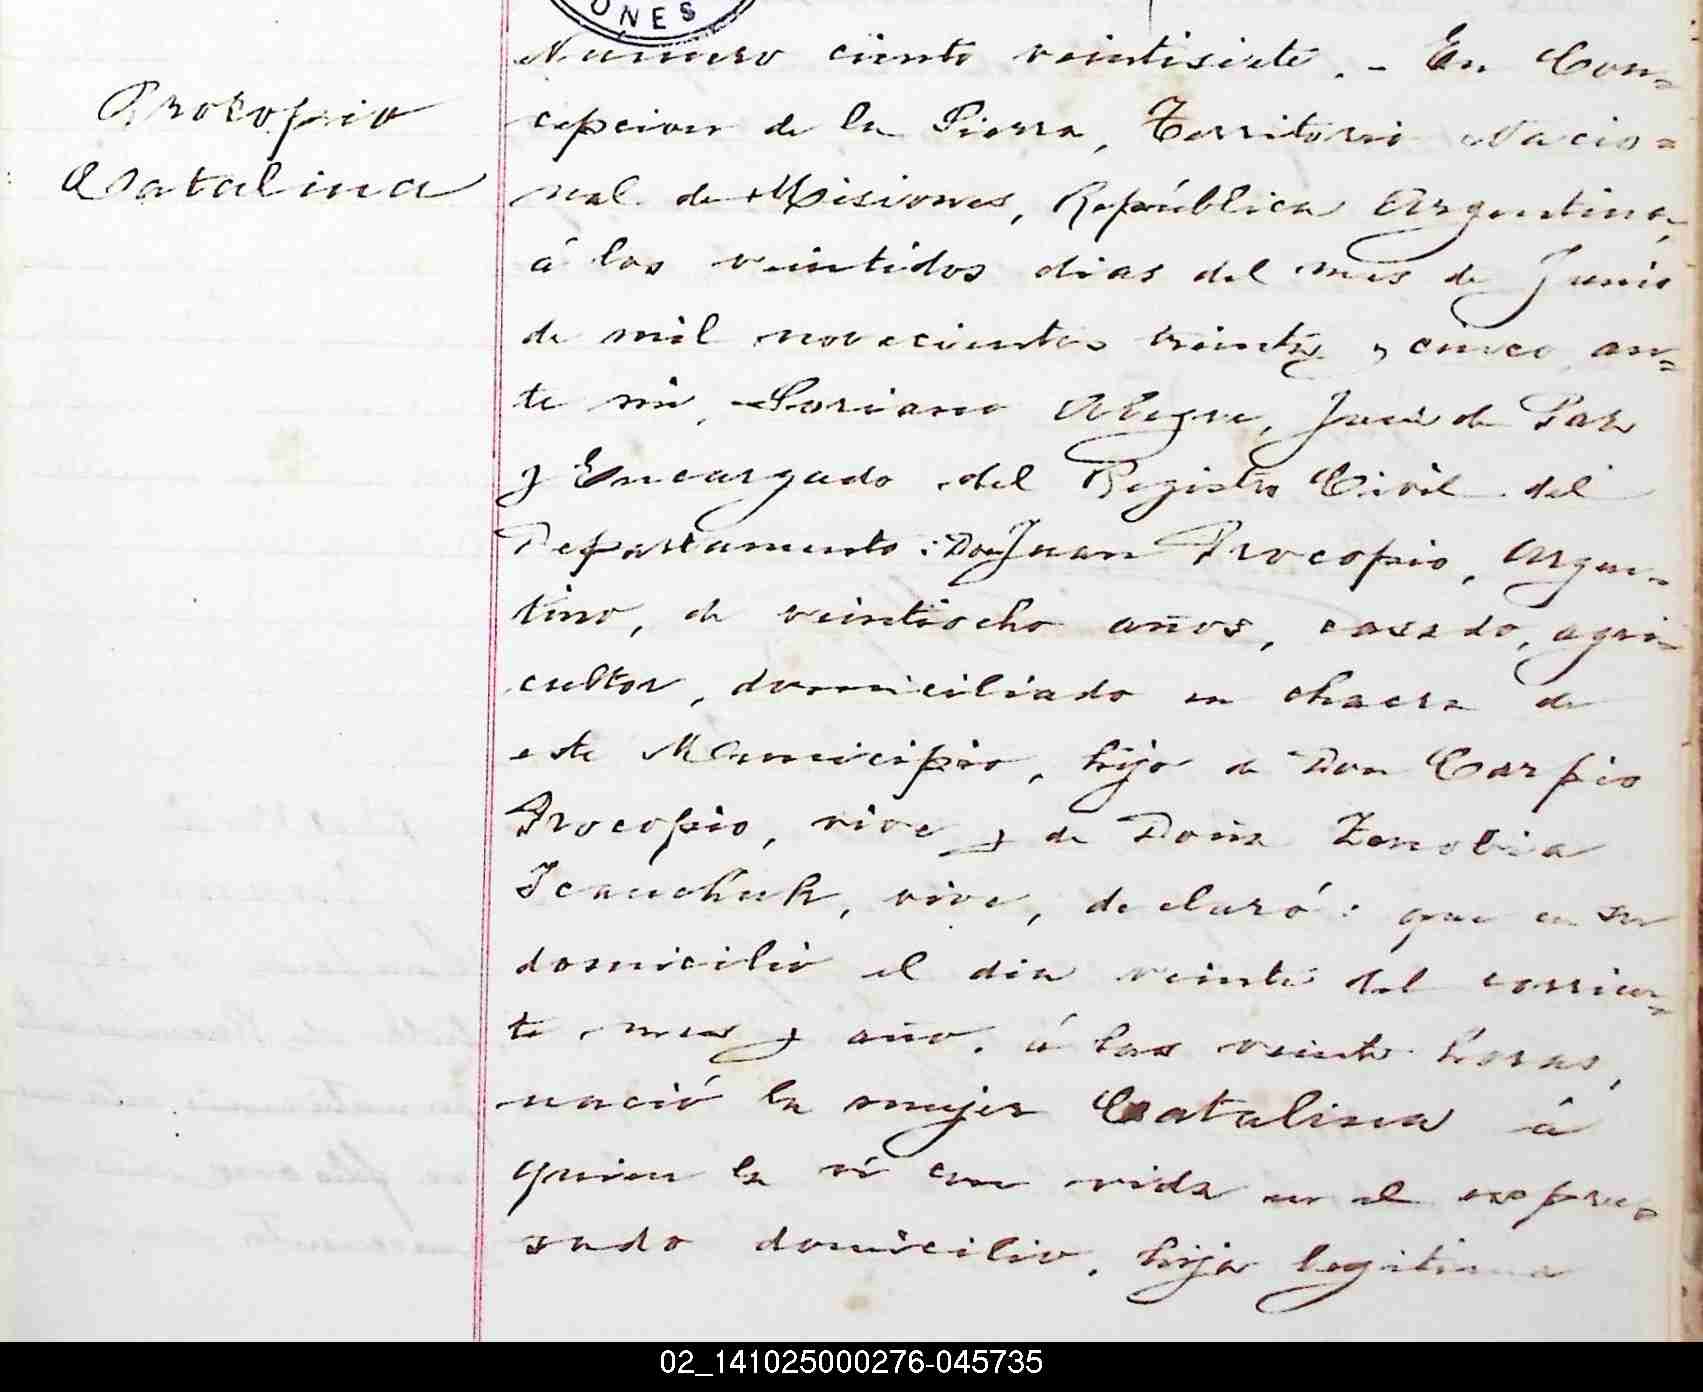 ONES
Procopio
Catalina
Numero ciento veintisiete. - En Con=
cepcion de la Sierra, Territorio Nacio=
nal de Misiones, República Argentina,
á los veintidos dias del mes de Junio
de mil novecientos treinta y cinco, an=
te mi, Soriano Alegre, Juez de Paz
y Encargado del Registro Civil del
Departamento: Don Juan Procopio, Argen=
tino, de veintiocho años, casado, agri=
cultor, domiciliado en chacra de
este Municipio, hijo de Don Carpio
Procopio, vive y de Doña Zenobia
vive, declaró: que en su
domicilio el dia veinte del corrien=
te mes y año, á las veinte horas,
nació la mujer Catalina á
quien la ví con vida en el expre=
sado domicilio, hija legitima
02_141025000276-045735